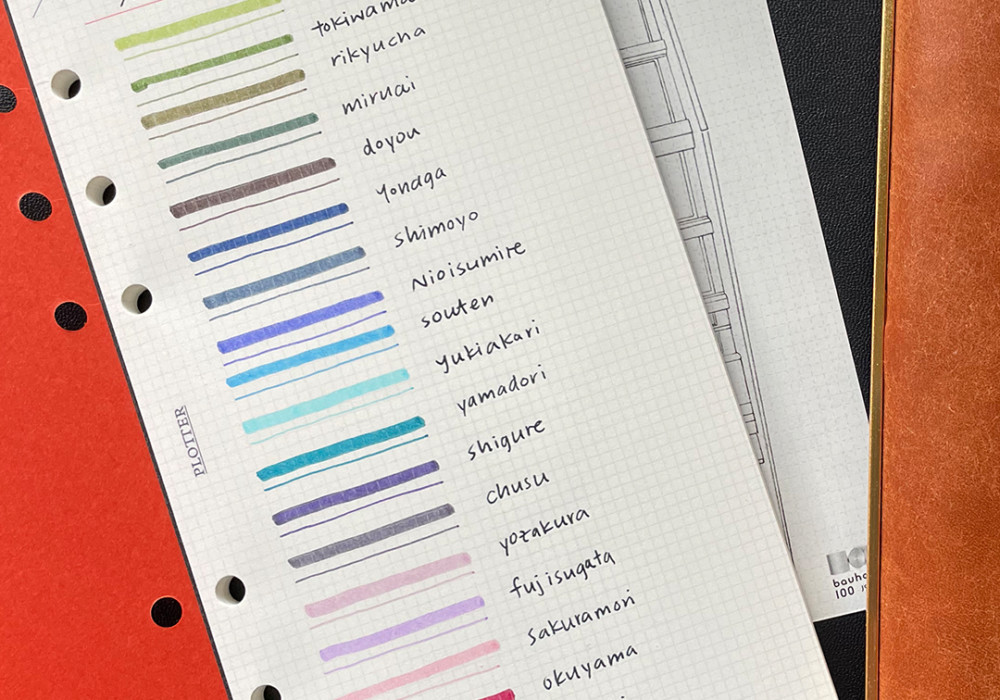 tokiwama
rikyucha
miruai
doyou
yonaga
shimoyo
Nioisumire
souten
yukiakari
yamadori
shigure
chusu
yozakura
fujisugata
sakuramori
okuyama
PLOTTER
bauha
100